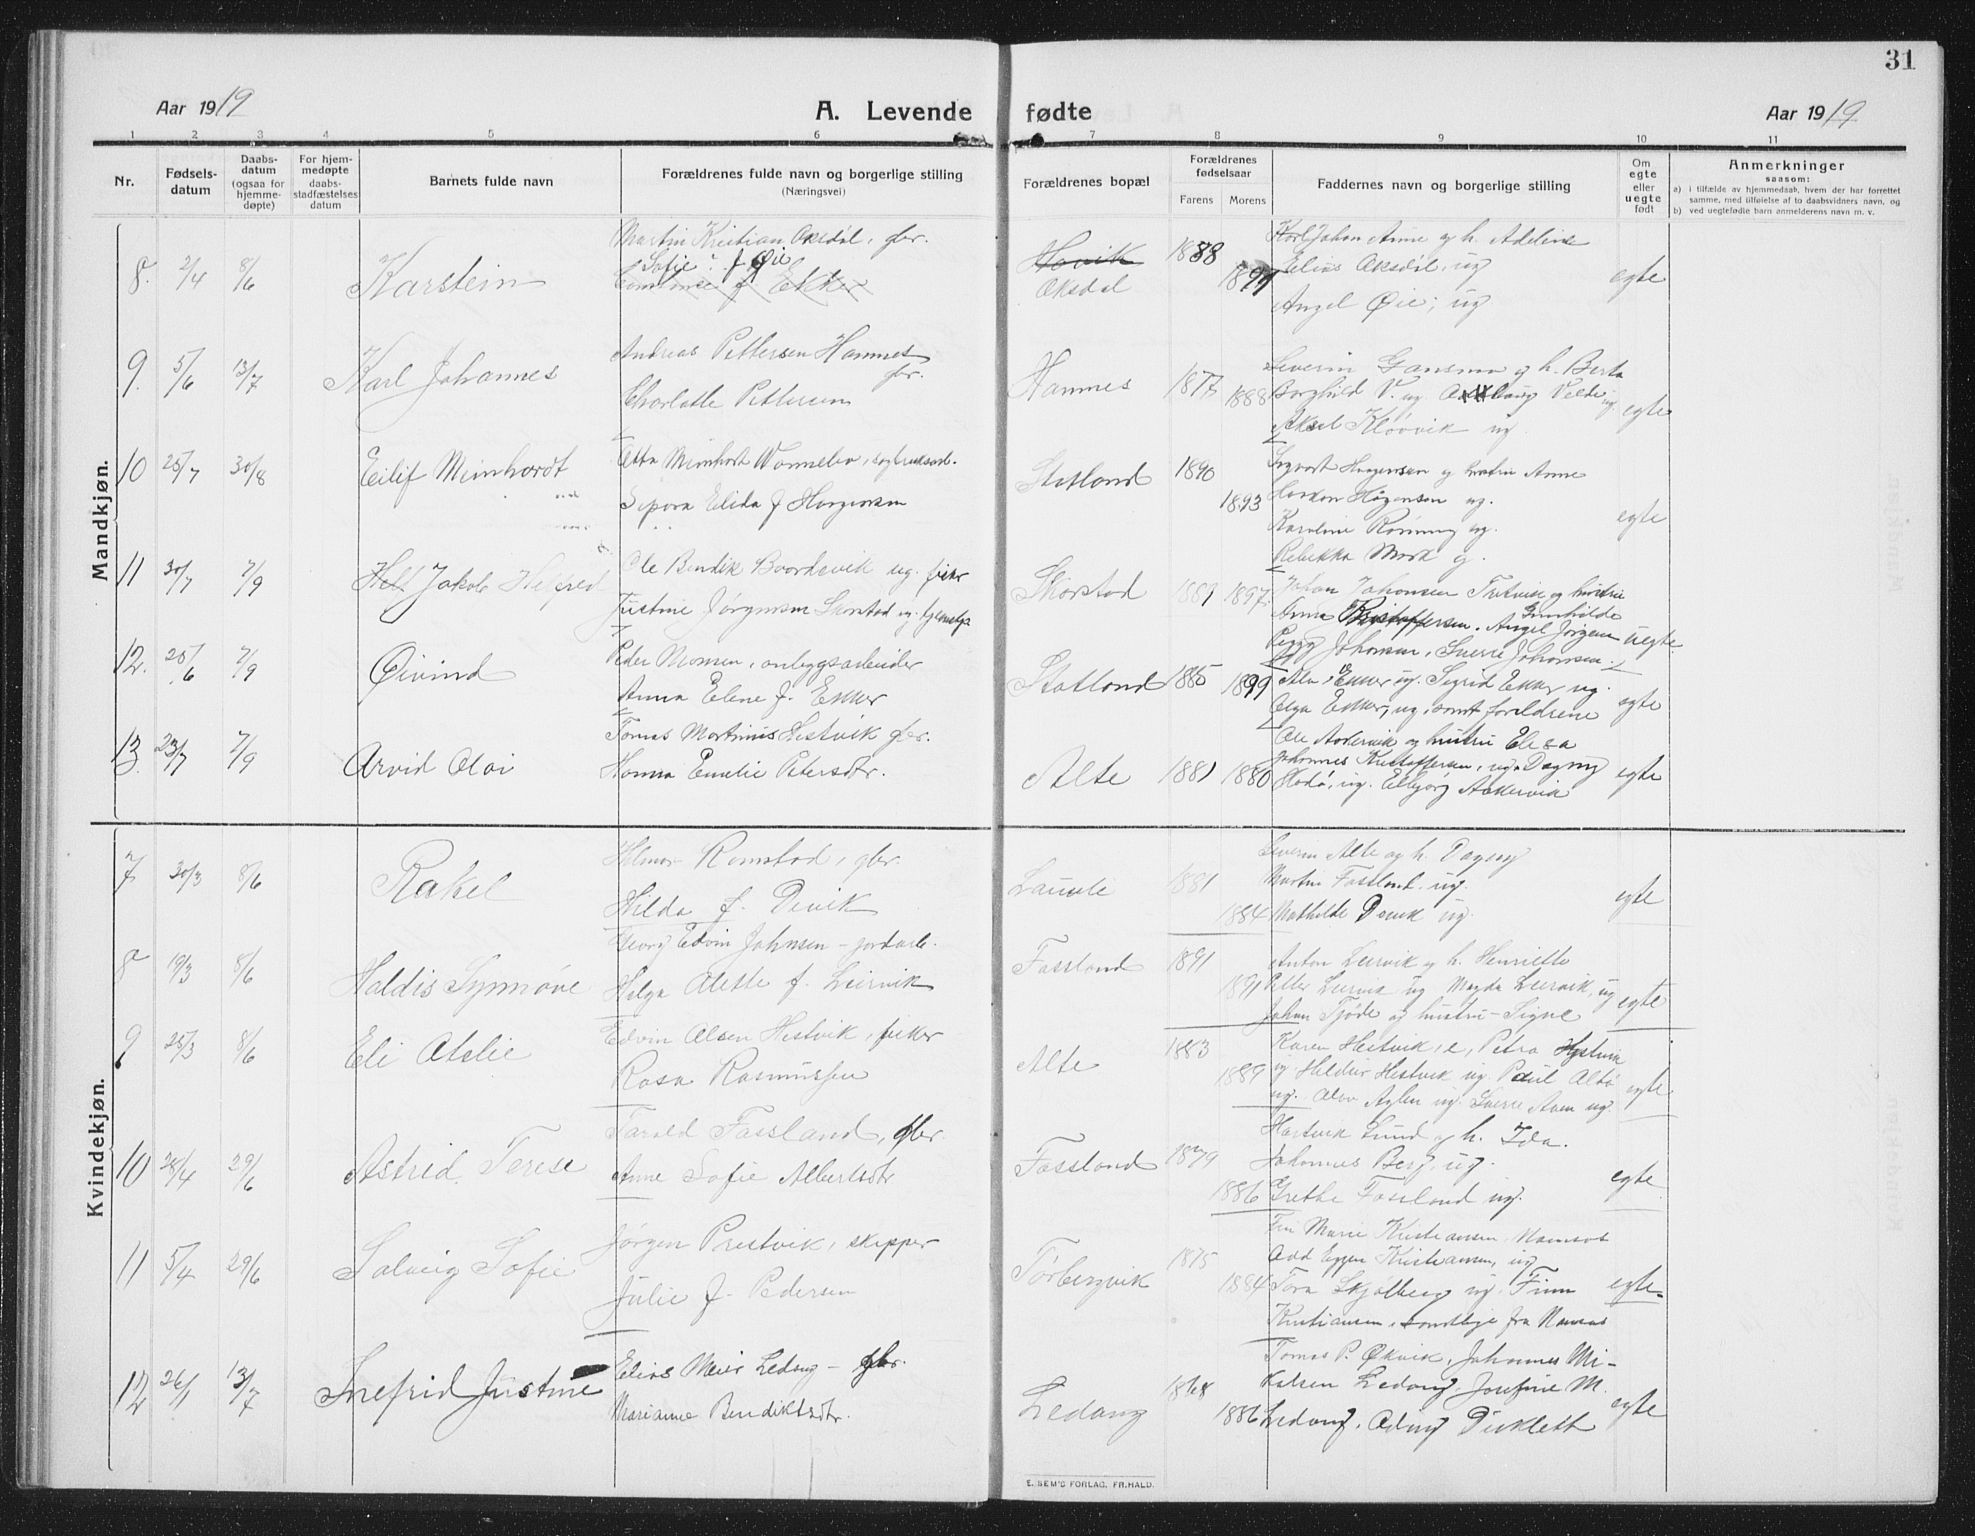 31
Aar 1919
A. Levende fødte
Aar 1919
1 2 3 4 5 6 7 8 9 10 11
Nr.
Fødsels-
datum
Daabs-
datum
(ogsaa for
hjemme-
døpte)
For hjem-
medøpte
daabs-
stadfæstelses
datum
Barnets fulde navn
Forældrenes fulde navn og borgerlige stilling
(Næringsvei)
Forældrenes bopæl
Forældrenes
fødselsaar
Farens Morens
Faddernes navn og borgerlige stilling
Om
egte
eller
uegte
født
Anmerkninger
saasom:
a) i tilfælde av hjemmedaab, hvem der har forrettet
samme, med tilføielse af to daabsvidners navn, og
b) ved uegtefødte barn anmelderens navn m. v.
Mandkjøn.
8. 2/4 8/6 Karstein
Martin Kristian Aksdal, gbr.
Sofie f. Øie
f. Ekker
Hovik
Aksdal
1888
1897
Karl Johan Anne og h. Adeline
Elias Aksdal, ug
Angel Øie; ug
egte
9. 5/6 13/7 Karl Johannes
Andreas Pettersen Hamnes
gbr.
Charlotte Pettersen
Hamnes
1877
1888
Severin Gansmo og h. Berta
Borghild V. ug. Velde ug.
Aksel Kløvvik ug
egte
10 25/7 30/8 Eilif Meinhardt
Otto Meinhart
Sepora Elida f Horgensen
Statland
1890
1893
Sigvart og hustru Anne
Haakon Hågensen ug.
Karoline Rønning ug.
Rebekka Mork g.
egte
11 30/7 7/9 Jakob Helfred
Ole Bendik ug. fisker
Justine Jørgensen ug.
Skorstad
1889
1897
Johan Johansen og hustru
Anna Kristoffersen. Angel Jørgen
Gunhilde
Peggy Johansen, Sverre Johansen.
uegte
12. 25/6 7/9 Øivind
Peder Monsen, anlegsarbeider
Anna Elene f. Ekker
Statland
1885
1899
Ekker ug. Sigrid Ekker ug.
Olga Ekker, ug, samt foreldrene
egte
13. 23/7 7/9 Arvid Olai
Tomas Martinus Hestvik gbr.
Hanna Emelie Petersdtr.
Alte
1881
1880
Ole Aakervik og hustru Elesa
Johannes Kristoffersen, ug, Dagny
ug. Eilbjørg Aakervik
egte
Kvindekjøn.
7 30/3 8/6 Rakel
Hilmar Ramstad, gbr.
Hilda f. Devik
1881
1884
Severin Alte og h. Dagny
Martin Fossland. ug.
Mathilde Devik ug.
egte
8 19/3 8/6 Haldis Synnøve
Georg Edvin Johnsen – jordarb.
Helga Alette f. Leirvik
Fossland
1891
1891
Anton Leirvik og h. Henriette
Petter Leirvik ug Magda Leirvik, ug
Johan Tjøde og hustru – Signe
egte
9 25/3 8/6 Eli Atelie
Edvin Olsen Hestvik, fisker
Rosa Rasmussen
Alte
1883
1889
Karen Hestvik, e, Petra Hestvik
ug Heldur Hestvik ug. Paul Altø
ug. Olav Aglen ug. Sverre Aven ug.
egte
10 28/4 29/6 Astrid Terese
Harald Fossland, gbr.
Anne Sofie Albertsdtr
Fossland
1879
1886
Hartvik Lund og h. Ida.
Johannes Berg, ug.
Grethe Fossland ug.
egte
11 5/4 29/6 Solveig Sofie
Jørgen Prestvik, skipper
Julie f. Pedersen
Tørbergvik
1875
1884
Fru Marie Kristiansen, Namsos
Odd Eggen Kristiansen, ug
Tora Skjølberg ug. Finn
Kristiansen, samtlige fra Namsos
egte
12 26/1 13/7 Snefrid Justine
Elias Meier Ledang – gbr.
Marianne Bendiktsdtr.
Ledang
1868
1886
Tomas P. Økvik, Johannes Mi-
kalsen Ledang, Josefine M.
Ledang, Odny Dukleth
egte
E. SEM'S FORLAG, FR.HALD.